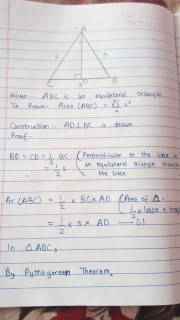 A
s
s
C
D
B
Given:- ABC is an equilateral triangle
To Prove:- Area (ABC) = √3/4 s²
Construction:- AD⊥BC is drawn.
Proof:-
BD = CD = 1/2 BC (Perpendicular to the base in
= 1/2 s an equilateral triangle bisects
the base.
Ar (ABC) = 1/2 × BC × AD (Area of Δ =
1/2 × base × heig
= 1/2 × s × AD — (1)
In Δ ADC,
By Pythagorean Theorem,